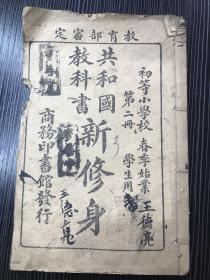 教育部審定
初等小學校 春季始業
第二冊 學生用
王德亮
共和國
教科書
新修身
商務印書館發行